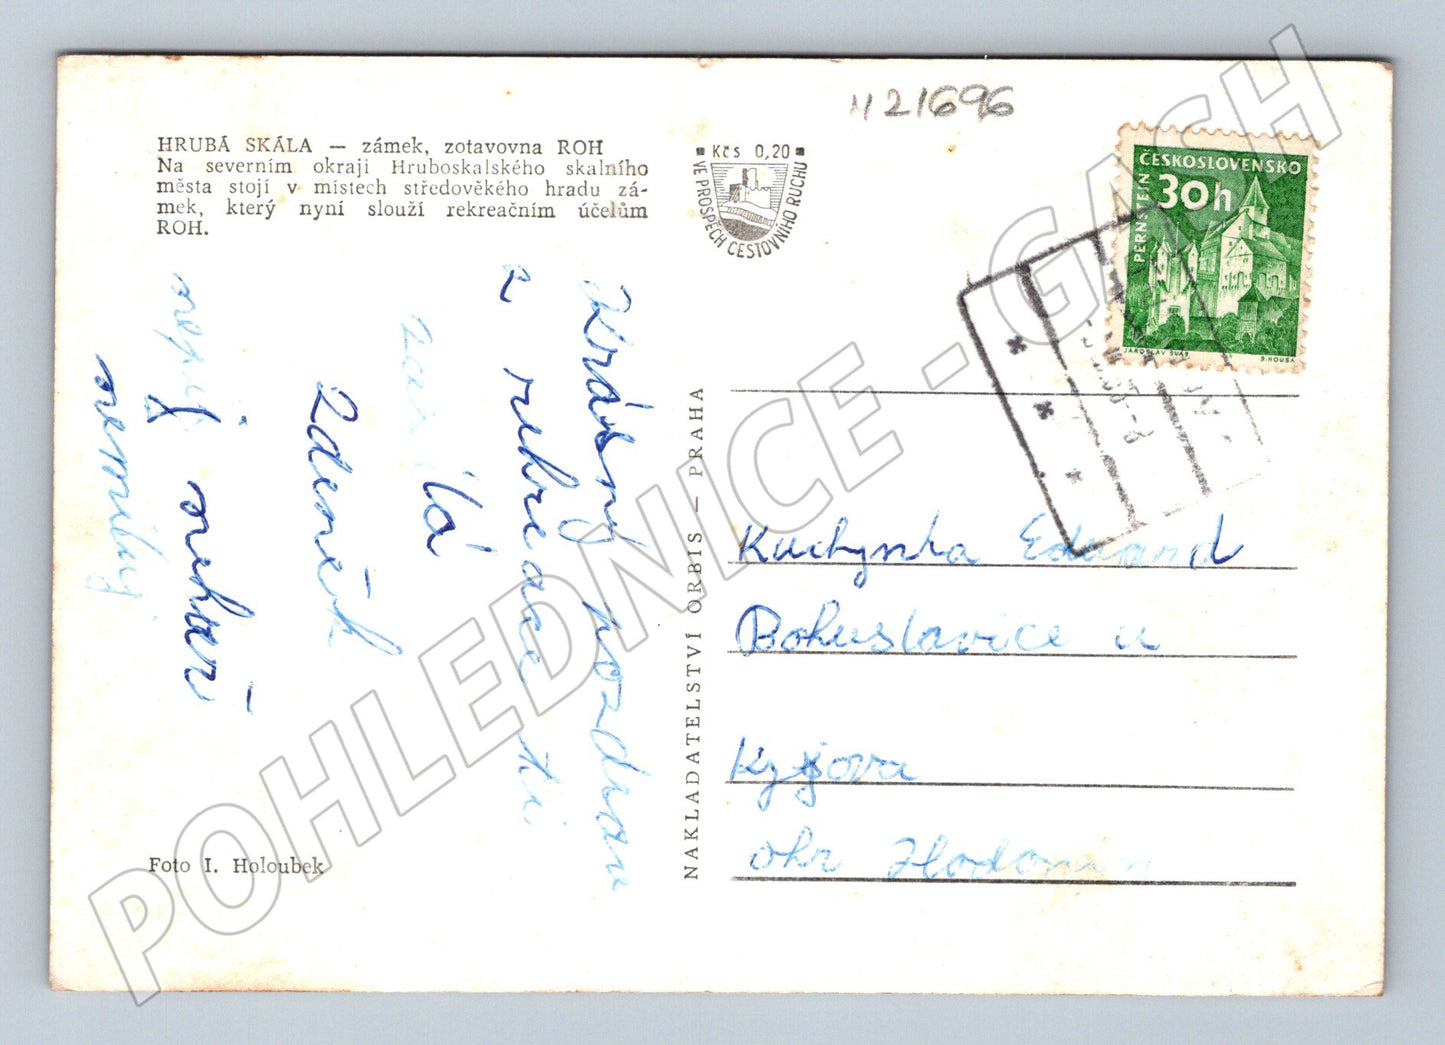 N 21696
HRUBÁ SKÁLA — zámek, zotavovna ROH
Na severním okraji Hruboskalského skalního
města stojí v místech středověkého hradu zá-
mek, který nyní slouží rekreačním účelům
ROH.
Kčs 0,20
VE PROSPĚCH CESTOVNÍHO RUCHU
ČESKOSLOVENSKO
30h
PERNŠTEJN
JAROSLAV ŠVÁB
Krásný pozdrav
z rekreace ti
Zdeněk
NAKLADATELSTVÍ ORBIS — PRAHA
Kuchyňka Eduard
Bohuslavice u
Kyjova
okr Hodonín
Foto I. Holoubek
POHLEDNICE - GASH